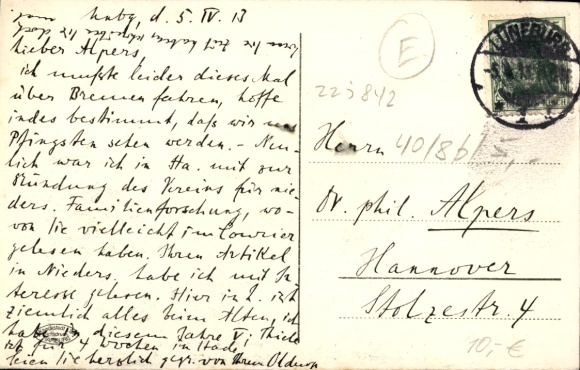 Lünebg, d. 5. IV. 13
Lieber Alpers,
ich mußte leider dieses Mal
über Bremen fahren, hoffe
indes bestimmt, daß wir uns
Pfingsten sehen werden. – Neu-
lich war ich in Ha. mit zur
Gründung des Vereins für nie-
ders. Familienforschung, wo-
von Sie vielleicht im Courier
gelesen haben. Ihren Artikel
in Nieders. habe ich mit In-
teresse gelesen. Hier in L. ist
ziemlich alles beim Alten, ich
habe in diesem Jahre V; Thiele
ist für 4 Wochen in Stade
Seien Sie herzlich gegr. von Ihrem
E
223842
LÜNEBURG
Herrn
40/8b
Dr. phil. Alpers
Hannover
Stolzestr. 4
10,- €